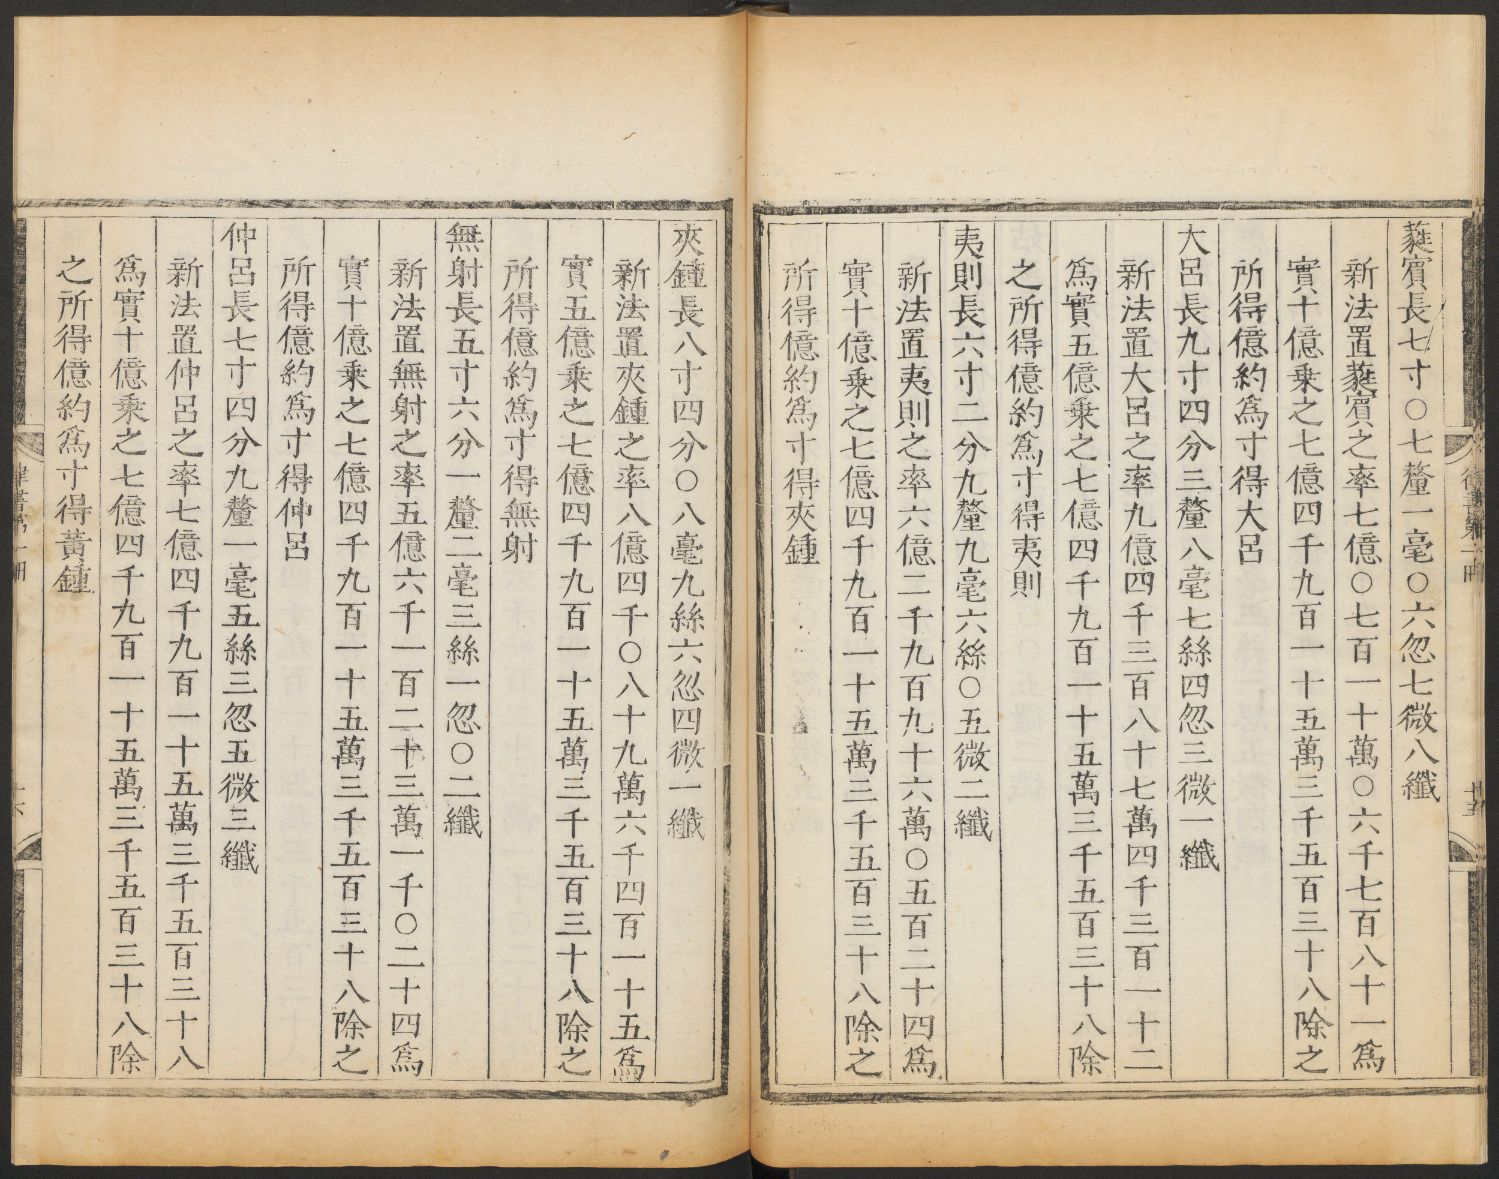 蕤賓長七寸〇七釐一毫〇六忽七微八纖
新法置蕤賓之率七億〇七百一十萬〇六千七百八十一爲
實十億乘之七億四千九百一十五萬三千五百三十八除之
所得億約爲寸得大呂
大呂長九寸四分三釐八毫七絲四忽三微一纖
新法置大呂之率九億四千三百八十七萬四千三百一十二
爲實五億乘之七億四千九百一十五萬三千五百三十八除
之所得億約爲寸得夷則
夷則長六寸二分九釐九毫六絲〇五微二纖
新法置夷則之率六億二千九百九十六萬〇五百二十四爲
實十億乘之七億四千九百一十五萬三千五百三十八除之
所得億約爲寸得夾鍾
夾鍾長八寸四分〇八毫九絲六忽四微一纖
新法置夾鍾之率八億四千〇八十九萬六千四百一十五爲
實五億乘之七億四千九百一十五萬三千五百三十八除之
所得億約爲寸得無射
無射長五寸六分一釐二毫三絲一忽〇二纖
新法置無射之率五億六千一百二十三萬一千〇二十四爲
實十億乘之七億四千九百一十五萬三千五百三十八除之
所得億約爲寸得仲呂
仲呂長七寸四分九釐一毫五絲三忽五微三纖
新法置仲呂之率七億四千九百一十五萬三千五百三十八
爲實十億乘之七億四千九百一十五萬三千五百三十八除
之所得億約爲寸得黃鍾